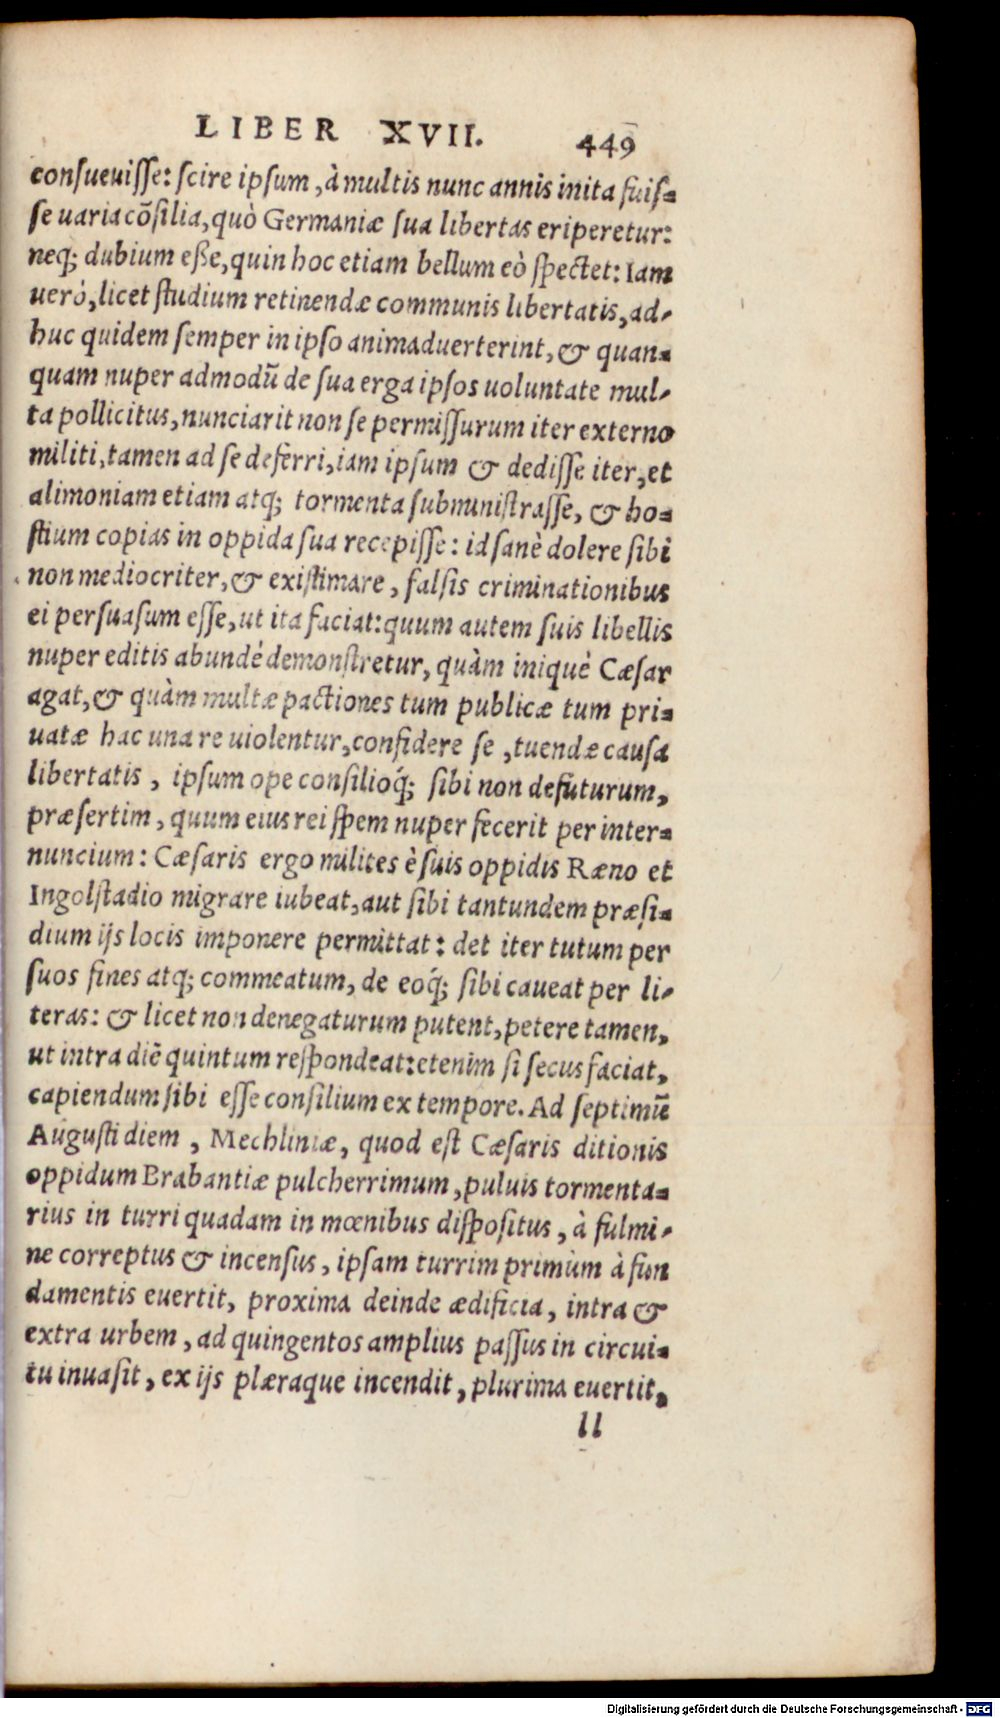 LIBER XVII. 449
consueuisse: scire ipsum, à multis nunc annis inita fuis-
se uaria cōsilia, quò Germaniæ sua libertas eriperetur:
neq; dubium eße, quin hoc etiam bellum eò spectet: Iam
uerò, licet studium retinendæ communis libertatis, ad-
huc quidem semper in ipso animaduerterint, & quan-
quam nuper admodū de sua erga ipsos uoluntate mul-
ta pollicitus, nunciarit non se permissurum iter externo
militi, tamen ad se deferri, iam ipsum & dedisse iter, et
alimoniam etiam atq; tormenta subministrasse, & ho-
stium copias in oppida sua recepisse: id sanè dolere sibi
non mediocriter, & existimare, falsis criminationibus
ei persuasum esse, ut ita faciat: quum autem suis libellis
nuper editis abundé demonstretur, quàm iniquè Cæsar
agat, & quàm multæ pactiones tum publicæ tum pri-
uatæ hac una re uiolentur, confidere se, tuendæ causa
libertatis, ipsum ope consilioq́; sibi non defuturum,
præsertim, quum eius rei spem nuper fecerit per inter-
nuncium: Cæsaris ergo milites è suis oppidis Ræno et
Ingolstadio migrare iubeat, aut sibi tantundem præsi-
dium ijs locis imponere permittat: det iter tutum per
suos fines atq; commeatum, de eoq́; sibi caueat per li-
teras: & licet non denegaturum putent, petere tamen,
ut intra diē quintum respondeat: etenim si secus faciat,
capiendum sibi esse consilium ex tempore. Ad septimū
Augusti diem, Mechliniæ, quod est Cæsaris ditionis
oppidum Brabantiæ pulcherrimum, puluis tormenta-
rius in turri quadam in mœnibus dispositus, à fulmi-
ne correptus & incensus, ipsam turrim primùm à fun
damentis euertit, proxima deinde ædificia, intra &
extra urbem, ad quingentos amplius passus in circui-
tu inuasit, ex ijs plæraque incendit, plurima euertit,
ll
Digitalisierung gefördert durch die Deutsche Forschungsgemeinschaft - DFG